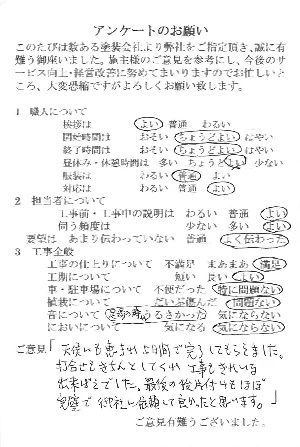 アンケートのお願い
このたびは数ある塗装会社より弊社をご指定頂き、誠に有
難う御座いました。施主様のご意見を参考にし、今後のサ
ービス向上・経営改善に努めてまいりますのでお忙しいと
ころ、大変恐縮ですがよろしくお願い致します。
1 職人について
挨拶は よい 普通 わるい
開始時間は おそい ちょうどよい はやい
終了時間は おそい ちょうどよい はやい
昼休み・休憩時間は 多い ちょうどよい 少ない
服装は わるい 普通 よい
対応は わるい 普通 よい
2 担当者について
工事前・工事中の説明は わるい 普通 よい
伺う頻度は 少ない 多い よい
要望は あまり伝わっていない 普通 よく伝わった
3 工事全般
工事の仕上りについて 不満足 まあまあ 満足
工期について 短い 長い よい
車・駐車場について 不便だった 特に問題ない
植栽について だいぶ傷んだ 問題ない
音について うるさかった 気にならない
においについて 気になる 気にならない
ご意見「天候にも恵まれ 日間で完了してもらえました。
打合せもきちんとしてくれ 工事もきれいな
出来ばえでした。最後の後片付けもほぼ
完璧で 御社に依頼して良かったと思います。」
ご意見有難うございました。